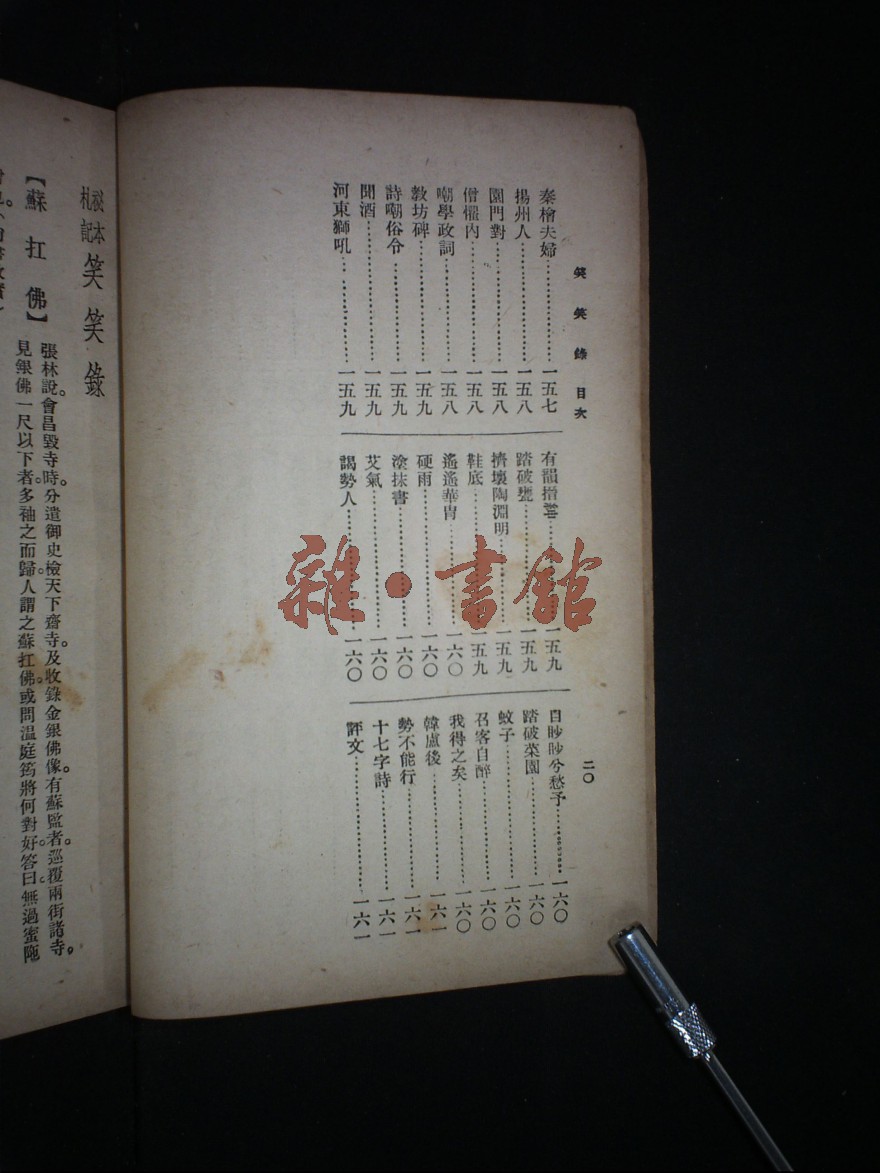 笑笑錄目次
二〇
秦檜夫婦……一五七
揚州人……一五八
園門對……一五八
僧懼內……一五八
嘲學政詞……一五八
教坊碑……一五九
詩嘲俗令……一五九
聞酒……一五九
河東獅吼……一五九
有韻搢紳……一五九
踏破甕……一五九
擠壞陶淵明……一五九
鞋底……一五九
遙遙華冑……一六〇
硬雨……一六〇
塗抹書……一六〇
艾氣……一六〇
謁勢人……一六〇
目眇眇兮愁予……一六〇
踏破菜園……一六〇
蚊子……一六〇
召客自醉……一六〇
我得之矣……一六〇
韓盧後……一六一
勢不能行……一六一
十七字詩……一六一
評文……一六一
雜·書館
祕本札記 笑笑錄
【蘇扛佛】
張林說。會昌毀寺時。分遣御史檢天下齋寺。及收錄金銀佛像。有蘇監者。巡覆兩街諸寺。
見銀佛一尺以下者。多袖之而歸。人謂之蘇扛佛。或問溫庭筠。將何對好。答曰。無過蜜陁